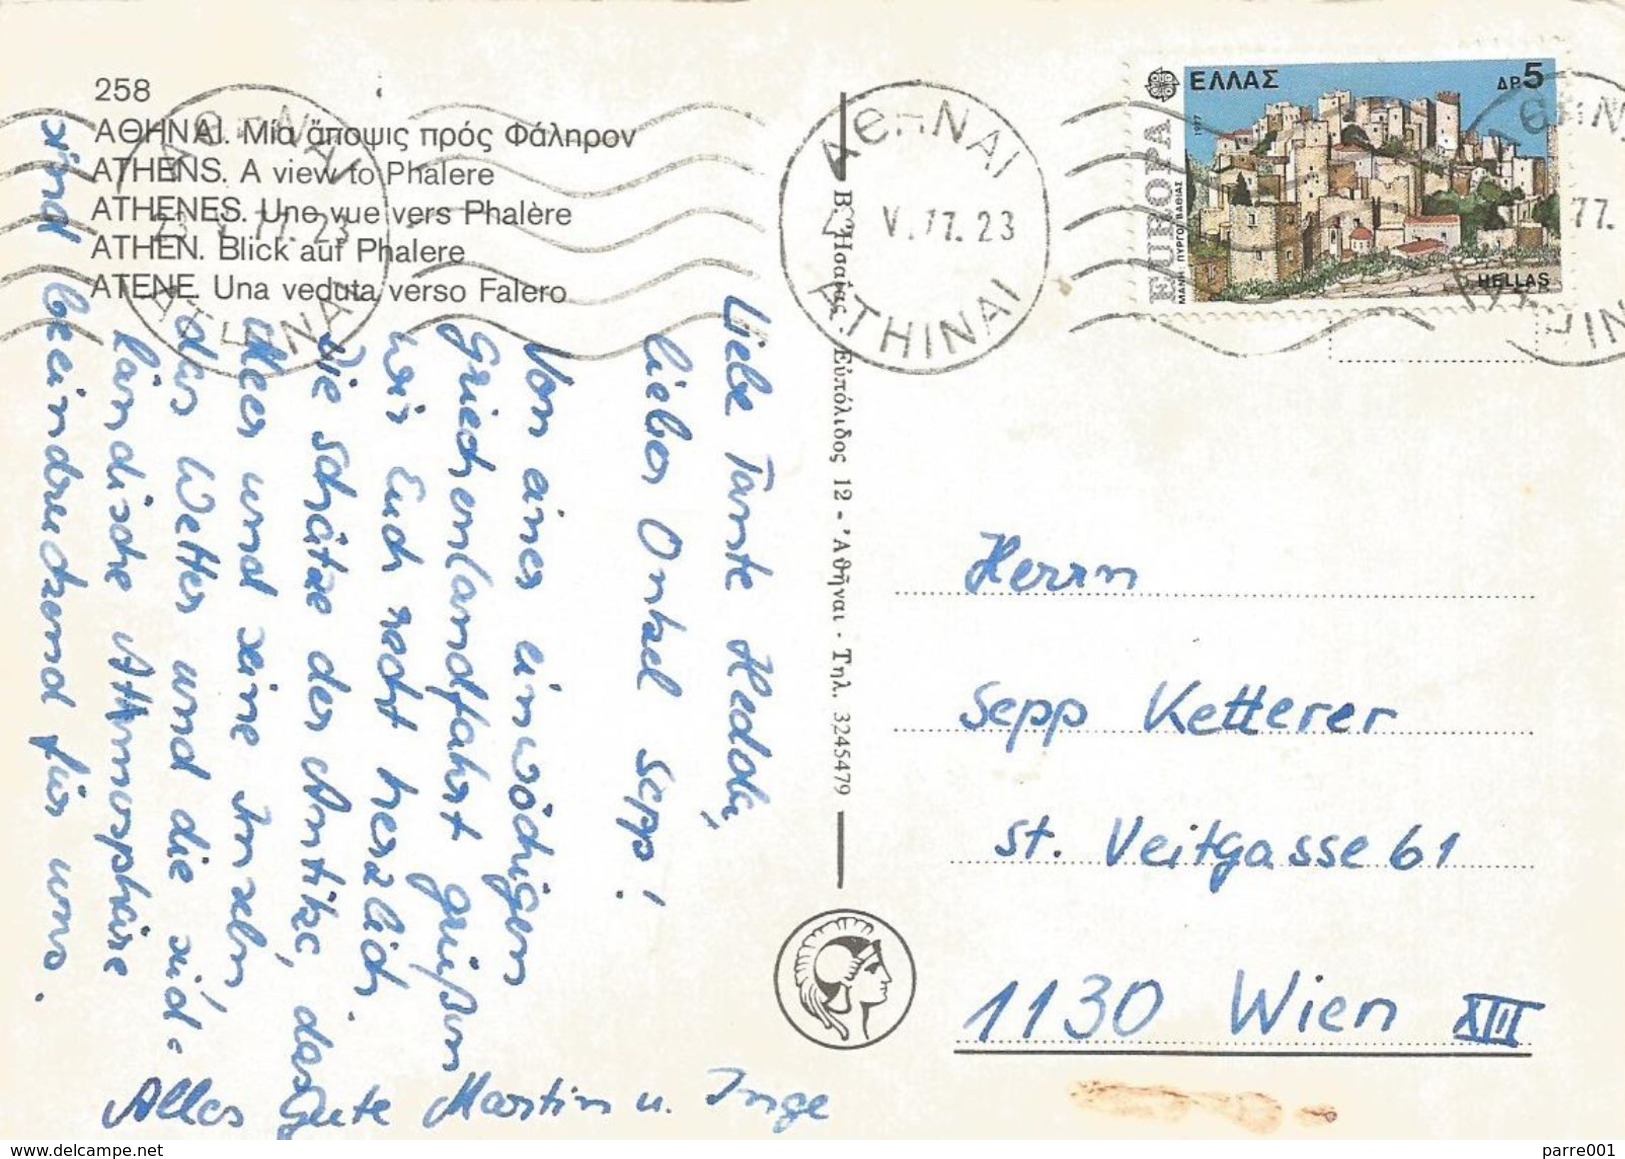 258
ΑΘΗΝΑΙ. Μία ἄποψις πρός Φάληρον
ATHENS. A view to Phalere
ATHENES. Une vue vers Phalère
ATHEN. Blick auf Phalere
ATENE. Una veduta verso Falero
Liebe Tante Hedda,
lieber Onkel Sepp!
Von einer einwöchigen
Griechenlandfahrt grüßen
wir Euch recht herzlich.
Die Schätze der Antike, das
Meer und seine Inseln,
das Wetter und die süd-
ländische Atmosphäre
sind beeindruckend für uns.
Alles Gute Martin u. Inge
Εὐπόλιδος 12 - Ἀθῆναι - Τηλ. 3245479
ΑΘΗΝΑΙ
V.77.23
ATHINAI
ΑΘΗΝΑΙ
23 V 77. 23
ATHINAI
ΕΛΛΑΣ
ΔΡ 5
1977
EUROPA
HELLAS
ΑΘΗΝΑΙ
77.
Herrn
Sepp Ketterer
St. Veitgasse 61
1130 Wien XIII
parre001